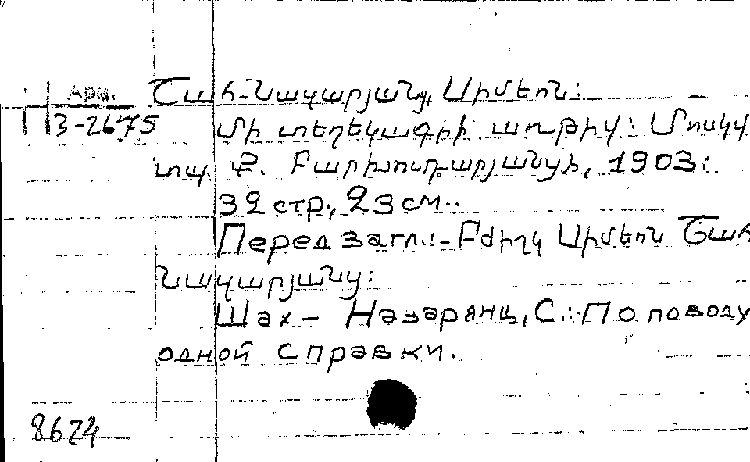 Арм.
3-2675
Շահ-Նազարյանց, Սիմեոն:
Մի տեղեկագրի առթիվ: Մոսկվ
տպ. Բարխուդարյանցի, 1903:
32 стр., 23 см..
Перед загл.:-Բժիշկ Սիմեոն Շահ
Նազարյանց:
Шах- Назарянц, С.:-По поводу
одной справки.
8624